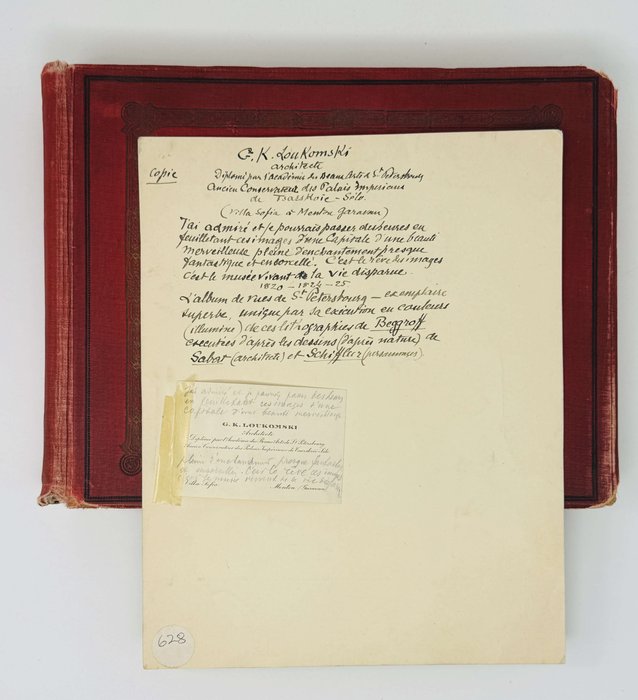 Copie
G. K. Loukomski
architecte
Diplomé par l'académie des Beaux Arts de St Petersbourg
Ancien Conservateur des Palais Imperiaux
de Tsarskoie-Selo.
(Villa Sofia à Menton Garavan)
J'ai admiré et je pourrais passer des heures en
feuilletant ces images d'une Capitale d'une beauté
merveilleuse pleine d'enchantement presque
fantastique et ensorcellé. C'est le rêve des images
c'est le musée vivant de la vie disparue.
1820 - 1824 - 25
L'album de vues de St Petersbourg - exemplaire
superbe, unique par sa execution en couleurs
(illuminé) de ces lithographies de Beggroff
executées d'après les dessins (d'après nature) de
Sabat (architecte) et Schiffler (personnages).
J'ai admiré et je pourrais passer des heures
en feuilletant ces images d'une
capitale d'une beauté merveilleuse
G. K. LOUKOMSKI
Architecte
Diplômé par l'Académie des Beaux-Arts de St-Pétersbourg
Ancien Conservateur des Palais Impériaux de Tsarskoïe-Sélo
pleine d'enchantement, presque fantastique
et ensorcellé. C'est le rêve des images
c'est le musée vivant de la vie
Villa Sofia Menton Garavan
628